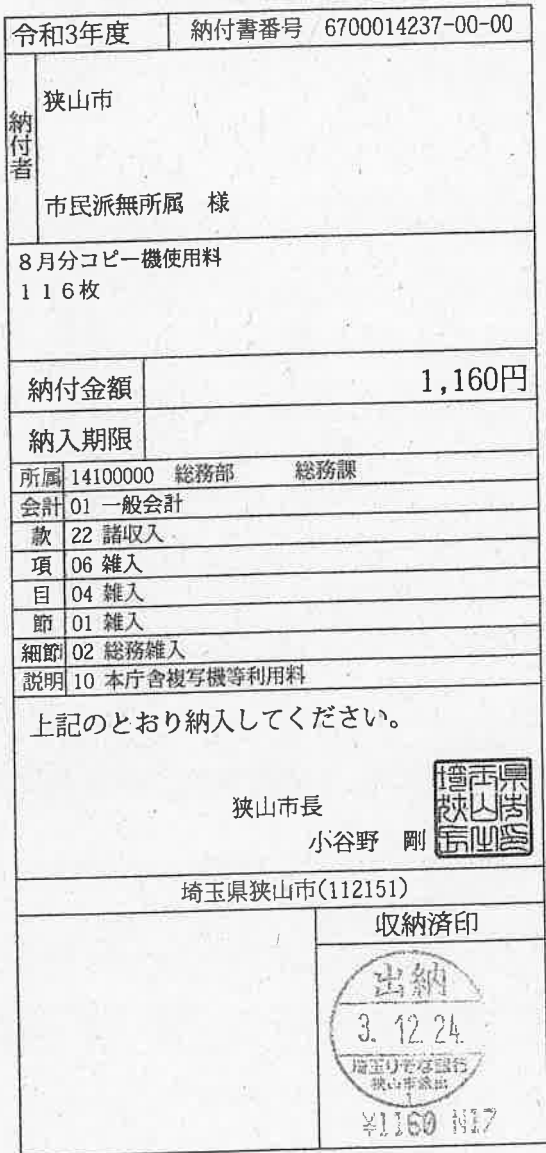 令和3年度 納付書番号 6700014237-00-00
納付者
狭山市
市民派無所属 様
8月分コピー機使用料
116枚
納付金額 1,160円
納入期限
所属 14100000 総務部 総務課
会計 01 一般会計
款 22 諸収入
項 06 雑入
目 04 雑入
節 01 雑入
細節 02 総務雑入
説明 10 本庁舎複写機等利用料
上記のとおり納入してください。
狭山市長
小谷野 剛
埼玉県狭山市長之印
埼玉県狭山市(112151)
収納済印
出納
3. 12. 24.
埼玉りそな銀行
狭山市派出
1
¥1160